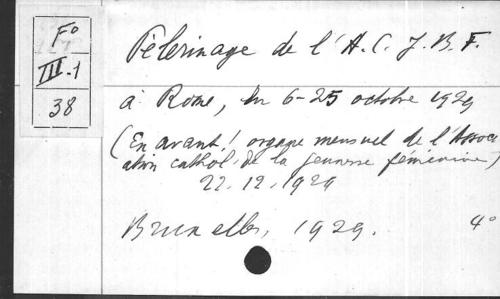 F°
III-1
38
Pèlerinage de l'A.C.J.B.F.
à Rome, du 6-25 octobre 1929
(En avant! organe mensuel de l'Associ
ation cathol. de la jeunesse féminine)
22.12.1929
Bruxelles, 1929. 4°